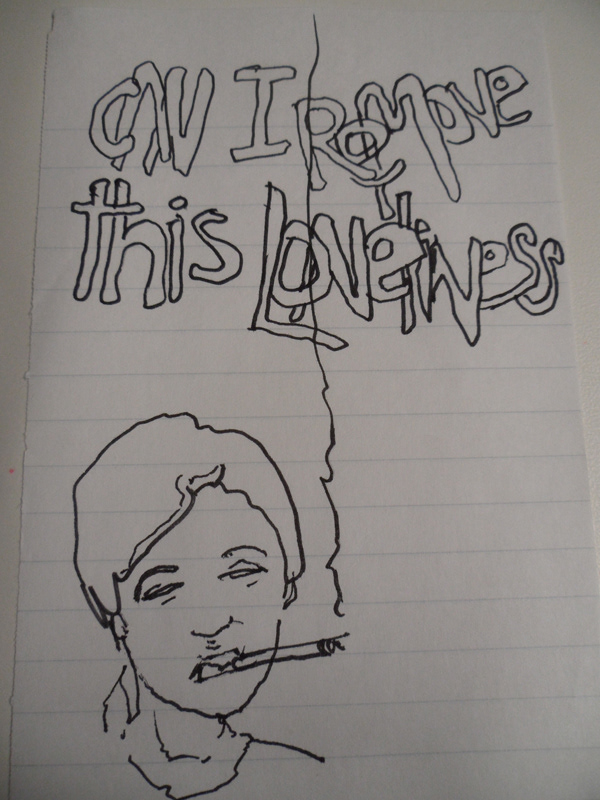 CAN I ReMove
this LoveliNess